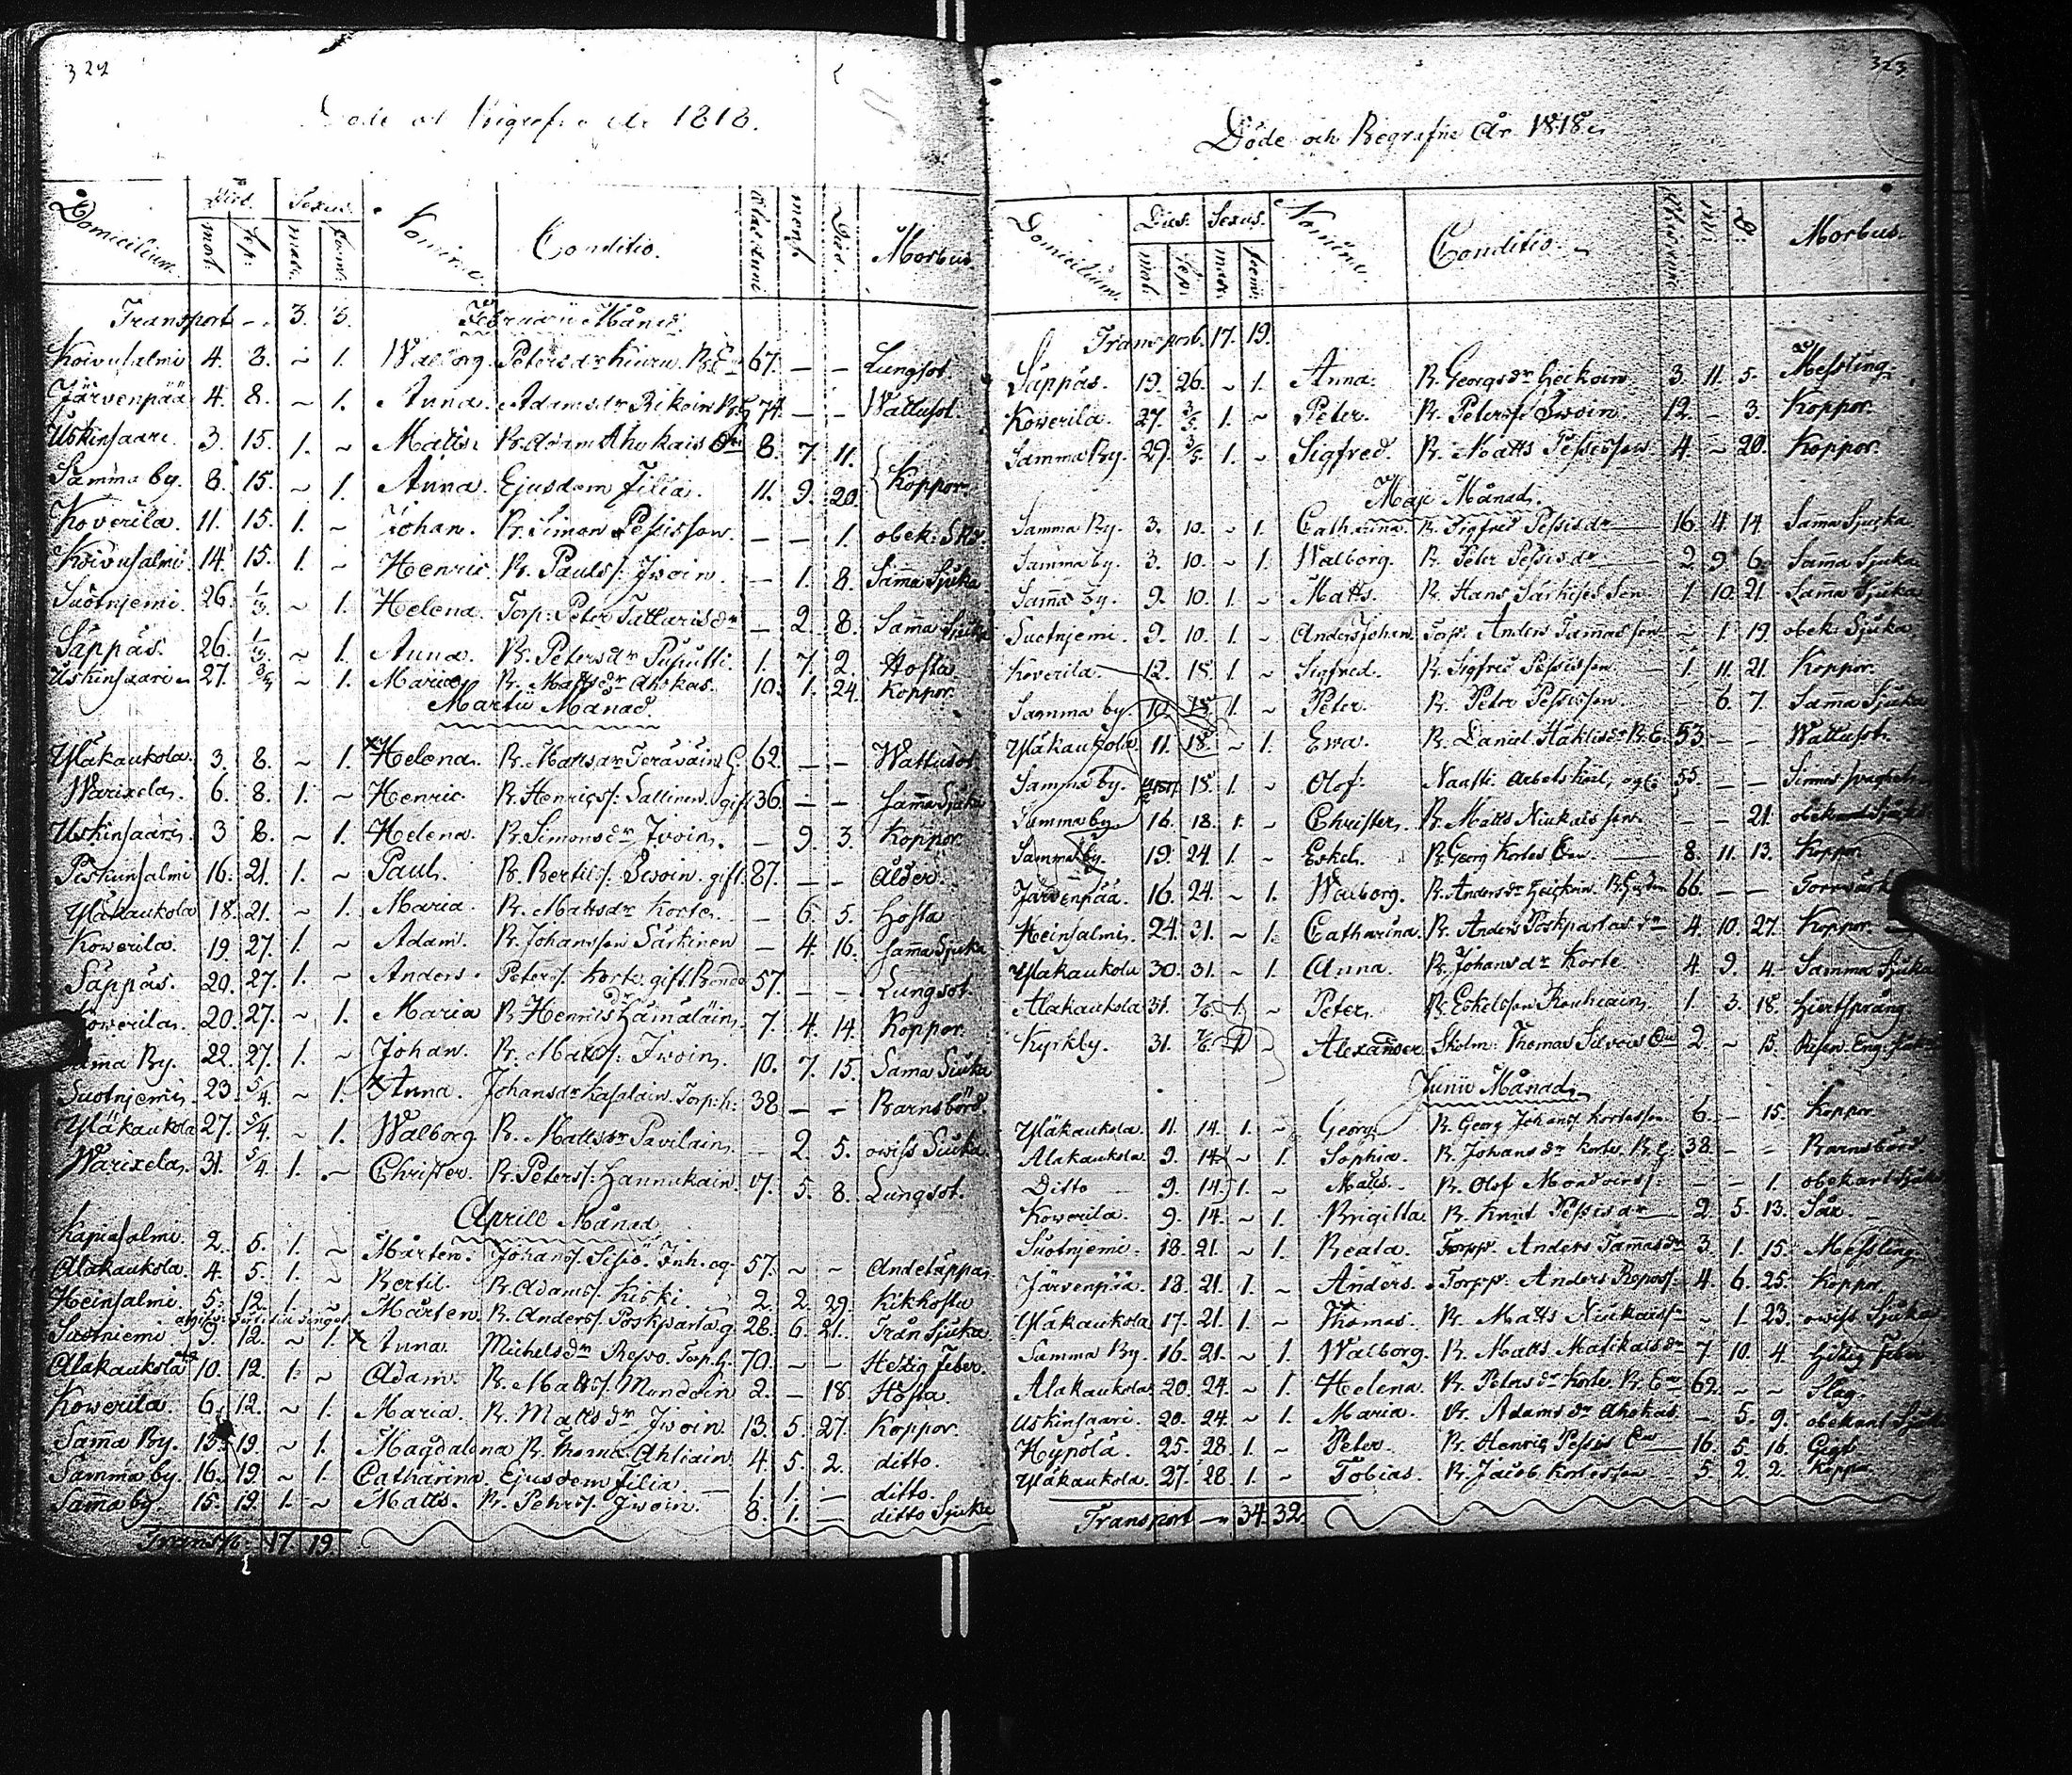 322
Döde och Begrafne År 1818.
Domicilium. Dies. Sexus. Nomine. Conditio. Morbus.
mort. Sep: masc. foem:
Transport 3. 3. Februarii Månad.
Koivusalmi 4. 8. ~ 1. Walborg. Petersdr Kiuru. B.E. 67. — — Lungsot.
Järvenpää 4. 8. ~ 1. Anna. Adamsdr Rikoin 74. — — Wattusot.
Uskinsaari. 3. 15. 1. ~ Matts. B. Adam Ahokais 8. 7. 11.
Samma by. 8. 15. ~ 1. Anna. Ejusdem filia. 11. 9. 20. Koppor.
Koverila. 11. 15. 1. ~ Johan. B. Simon Pessisson. — — 1. obek:
Koivusalmi 14. 15. 1. ~ Henric. B. Pauls/. Iwoin. — 1. 8. Sam̄a Sjuka
Suotnjemi. 26. 1/3. ~ 1. Helena. Torp: Peter Tattarisdr — 2. 8. Sam̄a Sjuka
Säppäs. 26. 1/3. ~ 1. Anna. B. Petersdr Puputti. 1. 7. 2. Hosta.
Uskinsaari 27. ~ 1. Maria B. Mattsdr Ahokas. 10. 1. 24. Koppor.
Martii Månad.
Yläkaukola. 3. 8. ~ 1. Helena. B. Mattsdr Teräväin 62. — — Wattusot
Warixela. 6. 8. 1. ~ Henric B. Henrics/. Sallinen. gift 36. — — Sam̄a Sjuka
Uskinsaari. 3 8. ~ 1. Helena. B. Simonsdr Iwoin. — 9. 3. Koppor.
Peskunsalmi 16. 21. 1. ~ Paul. B. Bertils/. Iwoin. gift. 87. — — Ålder.
Yläkaukola 18. 21. ~ 1. Maria. B. Mattsdr Korte. — 6. 5. Hosta
Kowerila. 19. 27. 1. ~ Adam. B. Johansson Särkinen — 4. 16. Sam̄a Sjuka
Säppäs. 20. 27. 1. ~ Anders. Peters/. Korte gift. Bonde 57. — — Lungsot.
Kowerila. 20. 27. ~ 1. Maria B. Henrics Hämäläin 7. 4. 14. Koppor.
Sama By. 22. 27. 1. ~ Johan. B. Matts/. Iwoin. 10. 7. 15. Sama Siuka
Suotnjemi. 23. 5/4. ~ 1. Anna. Johansdr Kasalain. Torp:h: 38 — — Barnsbörd.
Yläkaukola 27. 5/4. ~ 1. Walborg. B. Mattsdr Pavilain. — 2. 5. owiss Siuka.
Warixela. 31. 5/4 1. ~ Christer. B. Peters/: Hannukain. 17. 5. 8. Lungsot.
Aprill Månad
Kapiasalmi. 2. 5. 1. ~ Mårten. Johans/. Inh: 57. ~ ~ Andetäppa.
Alakaukola. 4. 5. 1. ~ Bertil. B. Adams/. Kiski 2. 2. 29. Kikhosta
Heinsalmi. 5. 12. 1. ~ Mårten B. Anders/. Poskparta g. 28. 6. 21. Trånsjuka.
Suotniemi 9. 12. ~ 1. Anna. Michelsdr Repo. Torp.h. 70. — — Hetzig feber.
Alakaukola 10. 12. 1. ~ Adam. B. Matts/. Mondoin 2. — 18. Hosta.
Kowerila. 6. 12. ~ 1. Maria. B. Mattsdr Iwoin. 13. 5. 27. Koppor.
Sam̄a By. 13. 19. ~ 1. Magdalena B. Thomas Ahtiain 4. 5. 2. ditto.
Samma by. 16. 19. ~ 1. Catharina. Ejusdem filia. — 1. 1. — ditto.
Sam̄a by. 15. 19. 1. ~ Matts. B. Peters/. Iwoin. 8. 1. — ditto Sjuka
Transp: 17. 19.
323
Döde och Begrafne År 1818.
Domicilium. Dies. Sexus. Nomine. Conditio. Morbus.
mort. Sep: masc. foem:
Transport. 17. 19.
Säppäs. 19. 26. ~ 1. Anna. B. Georgsdr Heikoin 3. 11. 5. Messling.
Kowerila. 27. 3/5. 1. ~ Peter. B. Peters/. Iwoin. 12. — 3. Koppor.
Samma By. 29. 3/5. 1. ~ Sigfred. B. Matts Pessisson. 4. ~ 20. Koppor.
Maji Månad.
Samma By. 3. 10. ~ 1. Catharina. B. Sigfred Pessisdr 16. 4. 14. Sam̄a Sjuka
Samma by. 3. 10. ~ 1. Walborg. B. Peter Pessisdr 2. 9. 6. Sam̄a Sjuka
Sam̄a by. 9. 10. 1. ~ Matts. B. Hans Särkises Son 1. 10. 21. Sam̄a Sjuka
Suotnjemi. 9. 10. 1. ~ Anders Johan. Torp: Anders Tam̄as son ~ 1. 19 obek: Sjuka
Koverila. 12. 18. 1. ~ Sigfred. B. Sigfred Pessisson 1. 11. 21. Koppor.
Samma by. 18. 1. ~ Peter. B. Peter Pessisson 6. 7. Sam̄a Sjuka
Yläkaukola. 11. 18. ~ 1. Ewa. B. Daniel Häklisdr B.E. 53. — — Wattusot.
Samma by. 18. 1. ~ Olof. Naatti Arbetskarl, 55. — —
Samma by. 16. 18. 1. ~ Christer. B. Matts Niukais son. — — 21. obekand Sjuka
Samma by. 19. 24. 1. ~ Eskel. B. Georg Kortes 8. 11. 13. Koppor
Järvenpää. 16. 24. ~ 1. Walborg. B. Andersdr Heickoin. 66. — —
Heinsalmi. 24. 31. ~ 1. Catharina. B. Anders Poskpartas dr 4. 10. 27. Koppor.
Yläkaukola 30. 31. ~ 1. Anna. B. Johansdr Korte. 4. 9. 4. Samma Sjuka
Alakaukola 31. 7/6. 1. ~ Peter. B. Eskelsson Rouhiain. 1. 3. 18. Hiertsprång
Kyrkby. 31. 7/6. 1. ~ Alexander. Skolm: Thomas 2. ~ 15.
Junii Månad.
Yläkaukola. 11. 14. 1. ~ Georg. B. Georg Johans/. Kortesson 6. — 15. Koppor
Alakaukola. 9. 14. ~ 1. Sophia. B. Johansdr Korte. B.E. 38. — — Barnsbörd
Ditto 9. 14. 1. ~ Matts. B. Olof Mondoins/. — — 1. obekant Sjuka
Kowerila. 9. 14. ~ 1. Brigitta B. Knut Pessisdr 2. 5. 13. Sår.
Suotnjemi. 18. 21. ~ 1. Beata. Torpp. Anders Tam̄asdr 3. 1. 15. Messling
Järvenpää 18. 21. 1. ~ Anders. Torpp. Anders Repos/. 4. 6. 25. Koppor
Yläkaukola 17. 21. 1. ~ Thomas. B. Matts Niukais/. ~ 1. 23. owiss Sjuka
Samma By. 16. 21. ~ 1. Walborg. B. Matts Matikaisdr 7. 10. 4. Hitzig Feber
Alakaukola. 20. 24. ~ 1. Helena. B. Petersdr Korte. B.E. 62. ~ ~ Slag.
Uskinsaari. 20. 24. ~ 1. Maria. B. Adamsdr Ahokas — 5. 9. obekant Sjuka
Heypölä. 25. 28. 1. ~ Peter. B. Henric Pessis 16. 5. 16. Gigt
Yläkaukola. 27. 28. 1. ~ Tobias. B. Jacob Kortesson 5. 2. 2. Koppor
Transport 34. 32.